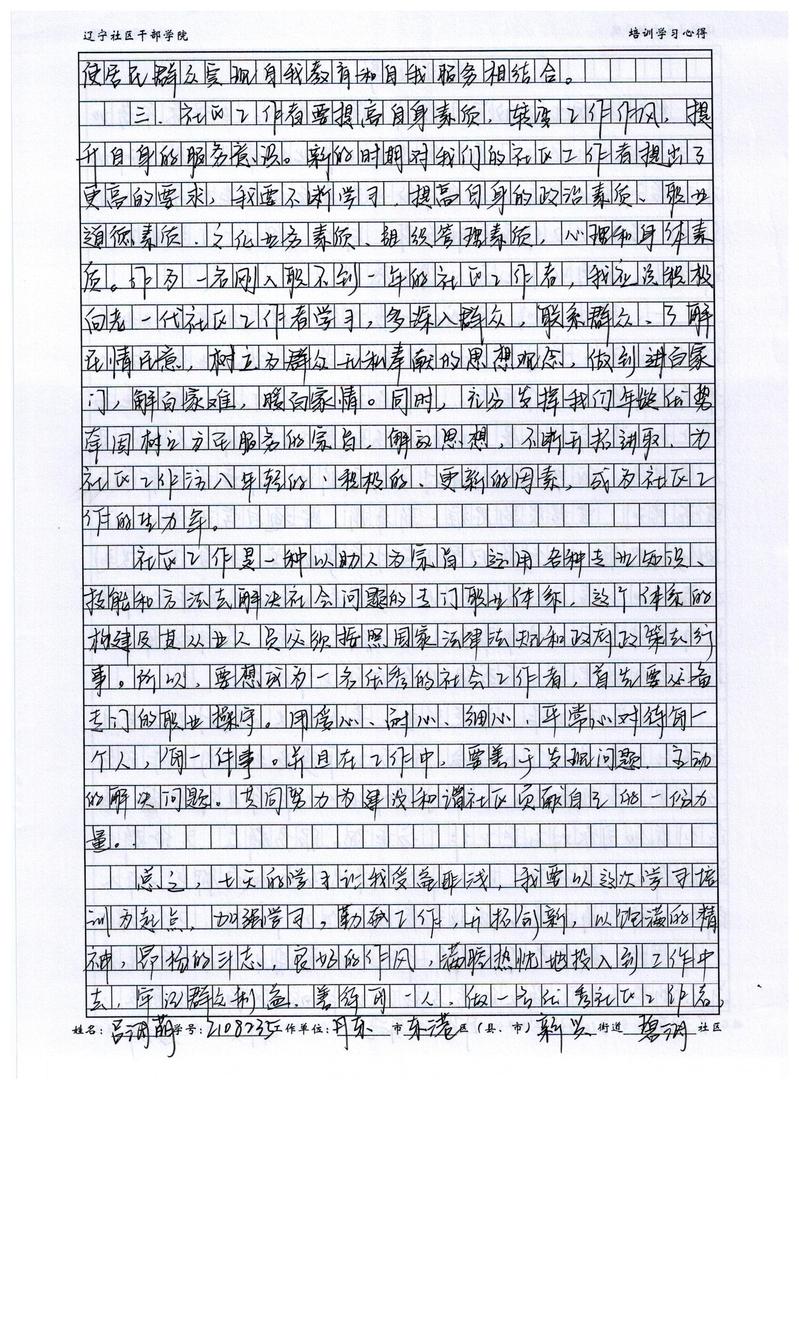 辽宁社区干部学院 培训学习心得
使居民群众实现自我教育和自我服务相结合。
三、社区工作者要提高自身素质，转变工作作风，提
升自身的服务意识。新的时期对我们的社区工作者提出了
更高的要求，我要不断学习 提高自身的政治素质、职业
道德素质、文化业务素质、组织管理素质，心理和身体素
质。作为一名刚入职不到一年的社区工作者，我应该积极
向老一代社区工作者学习，多深入群众，联系群众、了解
民情民意，树立为群众无私奉献的思想观念，做到进百家
门，解百家难，暖百家情。同时，充分发挥我们年龄优势
牢固树立为民服务的宗旨，解放思想，不断开拓进取，为
社区工作注入年轻的、积极的、更新的因素，成为社区工
作的生力军。
社区工作是一种以助人为宗旨，运用各种专业知识、
技能和方法去解决社会问题的专门职业体系，这个体系的
构建及其从业人员必须按照国家法律法规和政府政策去行
事。所以，要想成为一名优秀的社会工作者，首先要必备
专门的职业操守。用爱心、耐心、细心、平常心对待每一
个人，每一件事。并且在工作中，要善于发现问题，主动
的解决问题。共同努力为建设和谐社区贡献自己的一份力
量。
总之，七天的学习让我受益匪浅，我要以这次学习培
训为起点，加强学习，勤砺工作，开拓创新，以饱满的精
神，昂扬的斗志，良好的作风，满腔热忱地投入到工作中
去，牢记群众利益，善待每一人，做一名优秀社区工作者。
姓名：吕 萌 学号：2108235 工作单位：丹东 市 东港 区（县、市） 新兴 街道 碧湖 社区